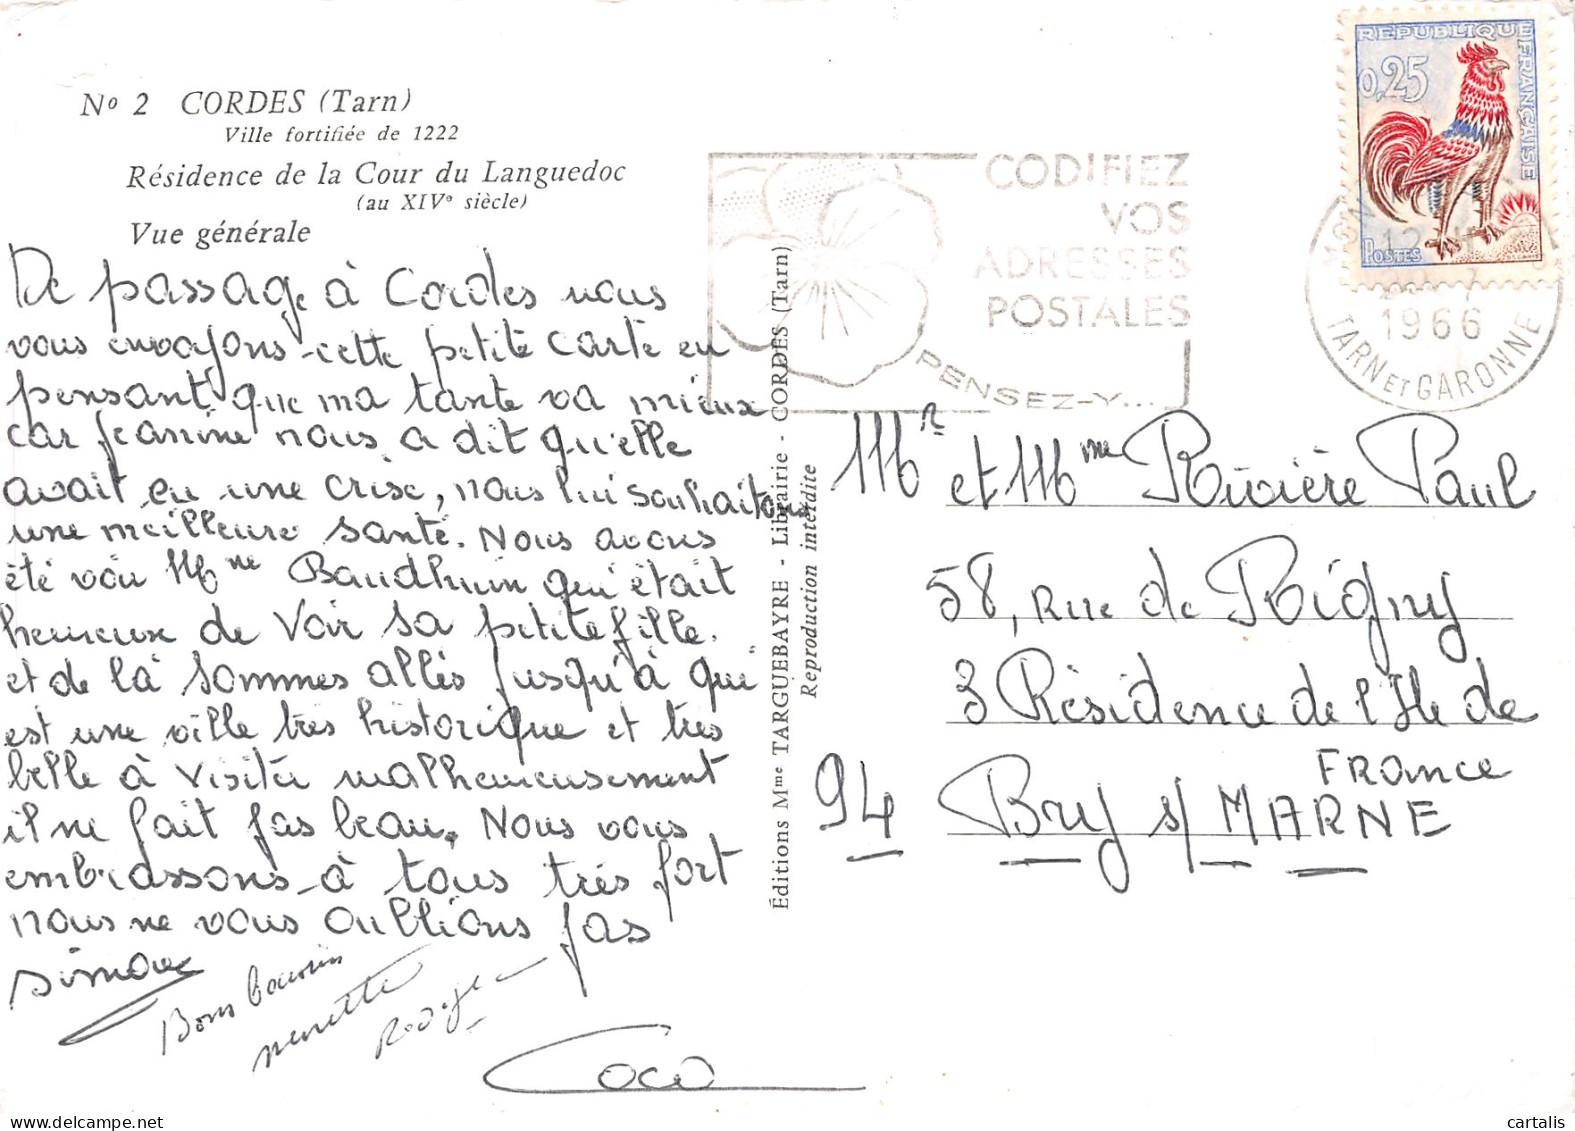 No 2 CORDES (Tarn)
Ville fortifiée de 1222
Résidence de la Cour du Languedoc
(au XIVe siècle)
Vue générale
De passage à Cordes nous
vous envoyons cette petite carte en
pensant que ma tante va mieux
car Jeanine nous a dit qu'elle
avait eu une crise, nous lui souhaitons
une meilleure santé. Nous avons
été voir Mme Baudhuin qui était
heureuse de voir sa petite fille.
et de là sommes allés jusqu'à qui
est une ville très historique et très
belle à visiter malheureusement
il ne fait pas beau. Nous vous
embrassons à tous très fort
nous ne vous oublions pas
Simone
Bons baisers
Coco
Éditions Mme TARGUEBAYRE - Librairie - CORDES (Tarn)
Reproduction interdite
CODIFIEZ
VOS
ADRESSES
POSTALES
PENSEZ-Y...
REPUBLIQUE FRANÇAISE
0,25
POSTES
1966
TARN ET GARONNE
Mr et Mme Rivière Paul
58, Rue de Rigny
3 Résidence de l'Ile de
FRANCE
94 Bry s/ MARNE
cartalis
delcampe.net